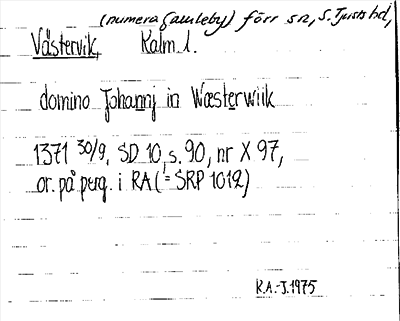 (numera Gamleby) förr sn, S. Tjusts hd,
Västervik, Kalm. l.
domino Johannj in Wæsterwiik
1371 30/9, SD 10, s. 90, nr X 97,
or. på perg. i RA (= SRP 1012)
R.A.-J. 1975